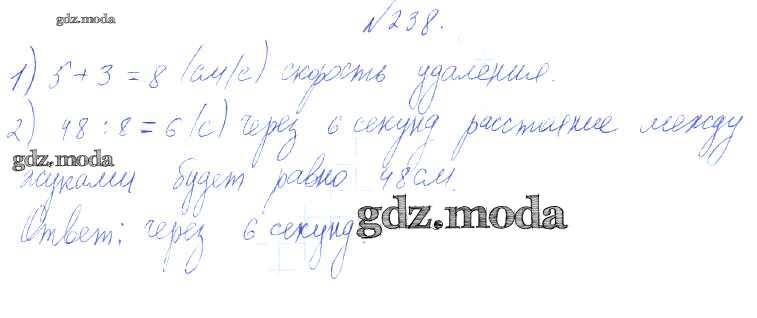 gdz.moda
№238.
1) 5+3=8 (см/с) скорость удаления.
2) 48:8=6 (с) через 6 секунд расстояние между
gdz.moda
жуками будет равно 48см.
Ответ: через 6 секунд.
gdz.moda